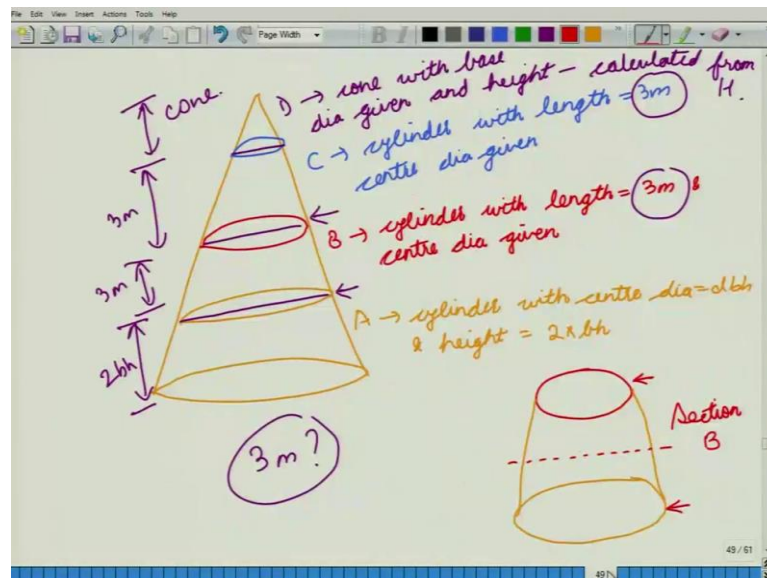 File Edit View Insert Actions Tools Help
Page Width
cone.
D → cone with base
dia given and height - calculated from
H.
C → cylinder with length = 3m
centre dia given
3m
B → cylinder with length = 3m &
centre dia given
3m
A → cylinder with centre dia = dbh
& height = 2 x bh
2bh
3m?
Section
B
49 / 61
49